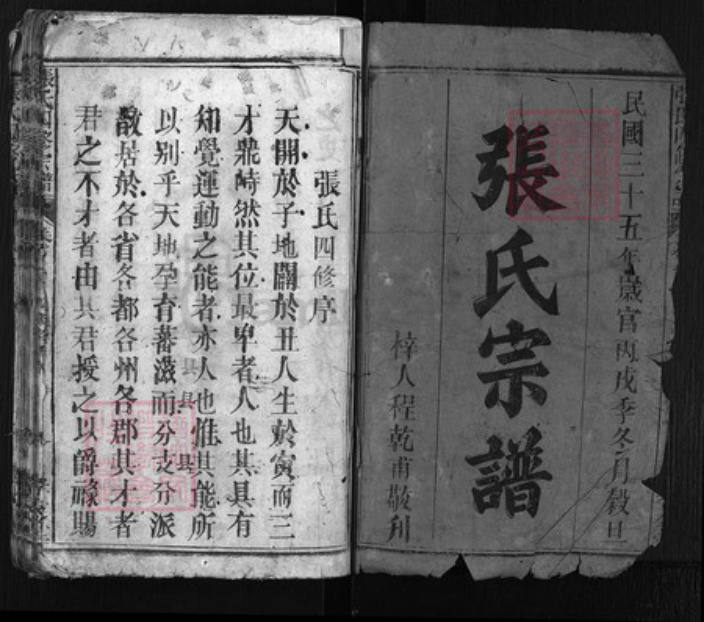 民國三十五年歲官丙戌季冬月穀旦
張氏宗譜
梓人程乾甫敬刋
張氏四修序
天開於子地闢於丑人生於寅而三
才鼎峙然其位最卑者人也其具有
知覺運動之能者亦人也惟其能所
以别乎天地孕育蕃滋而分支分派
散居於各省各都各州各郡其才者
君之不才者由其君授之以爵祿賜